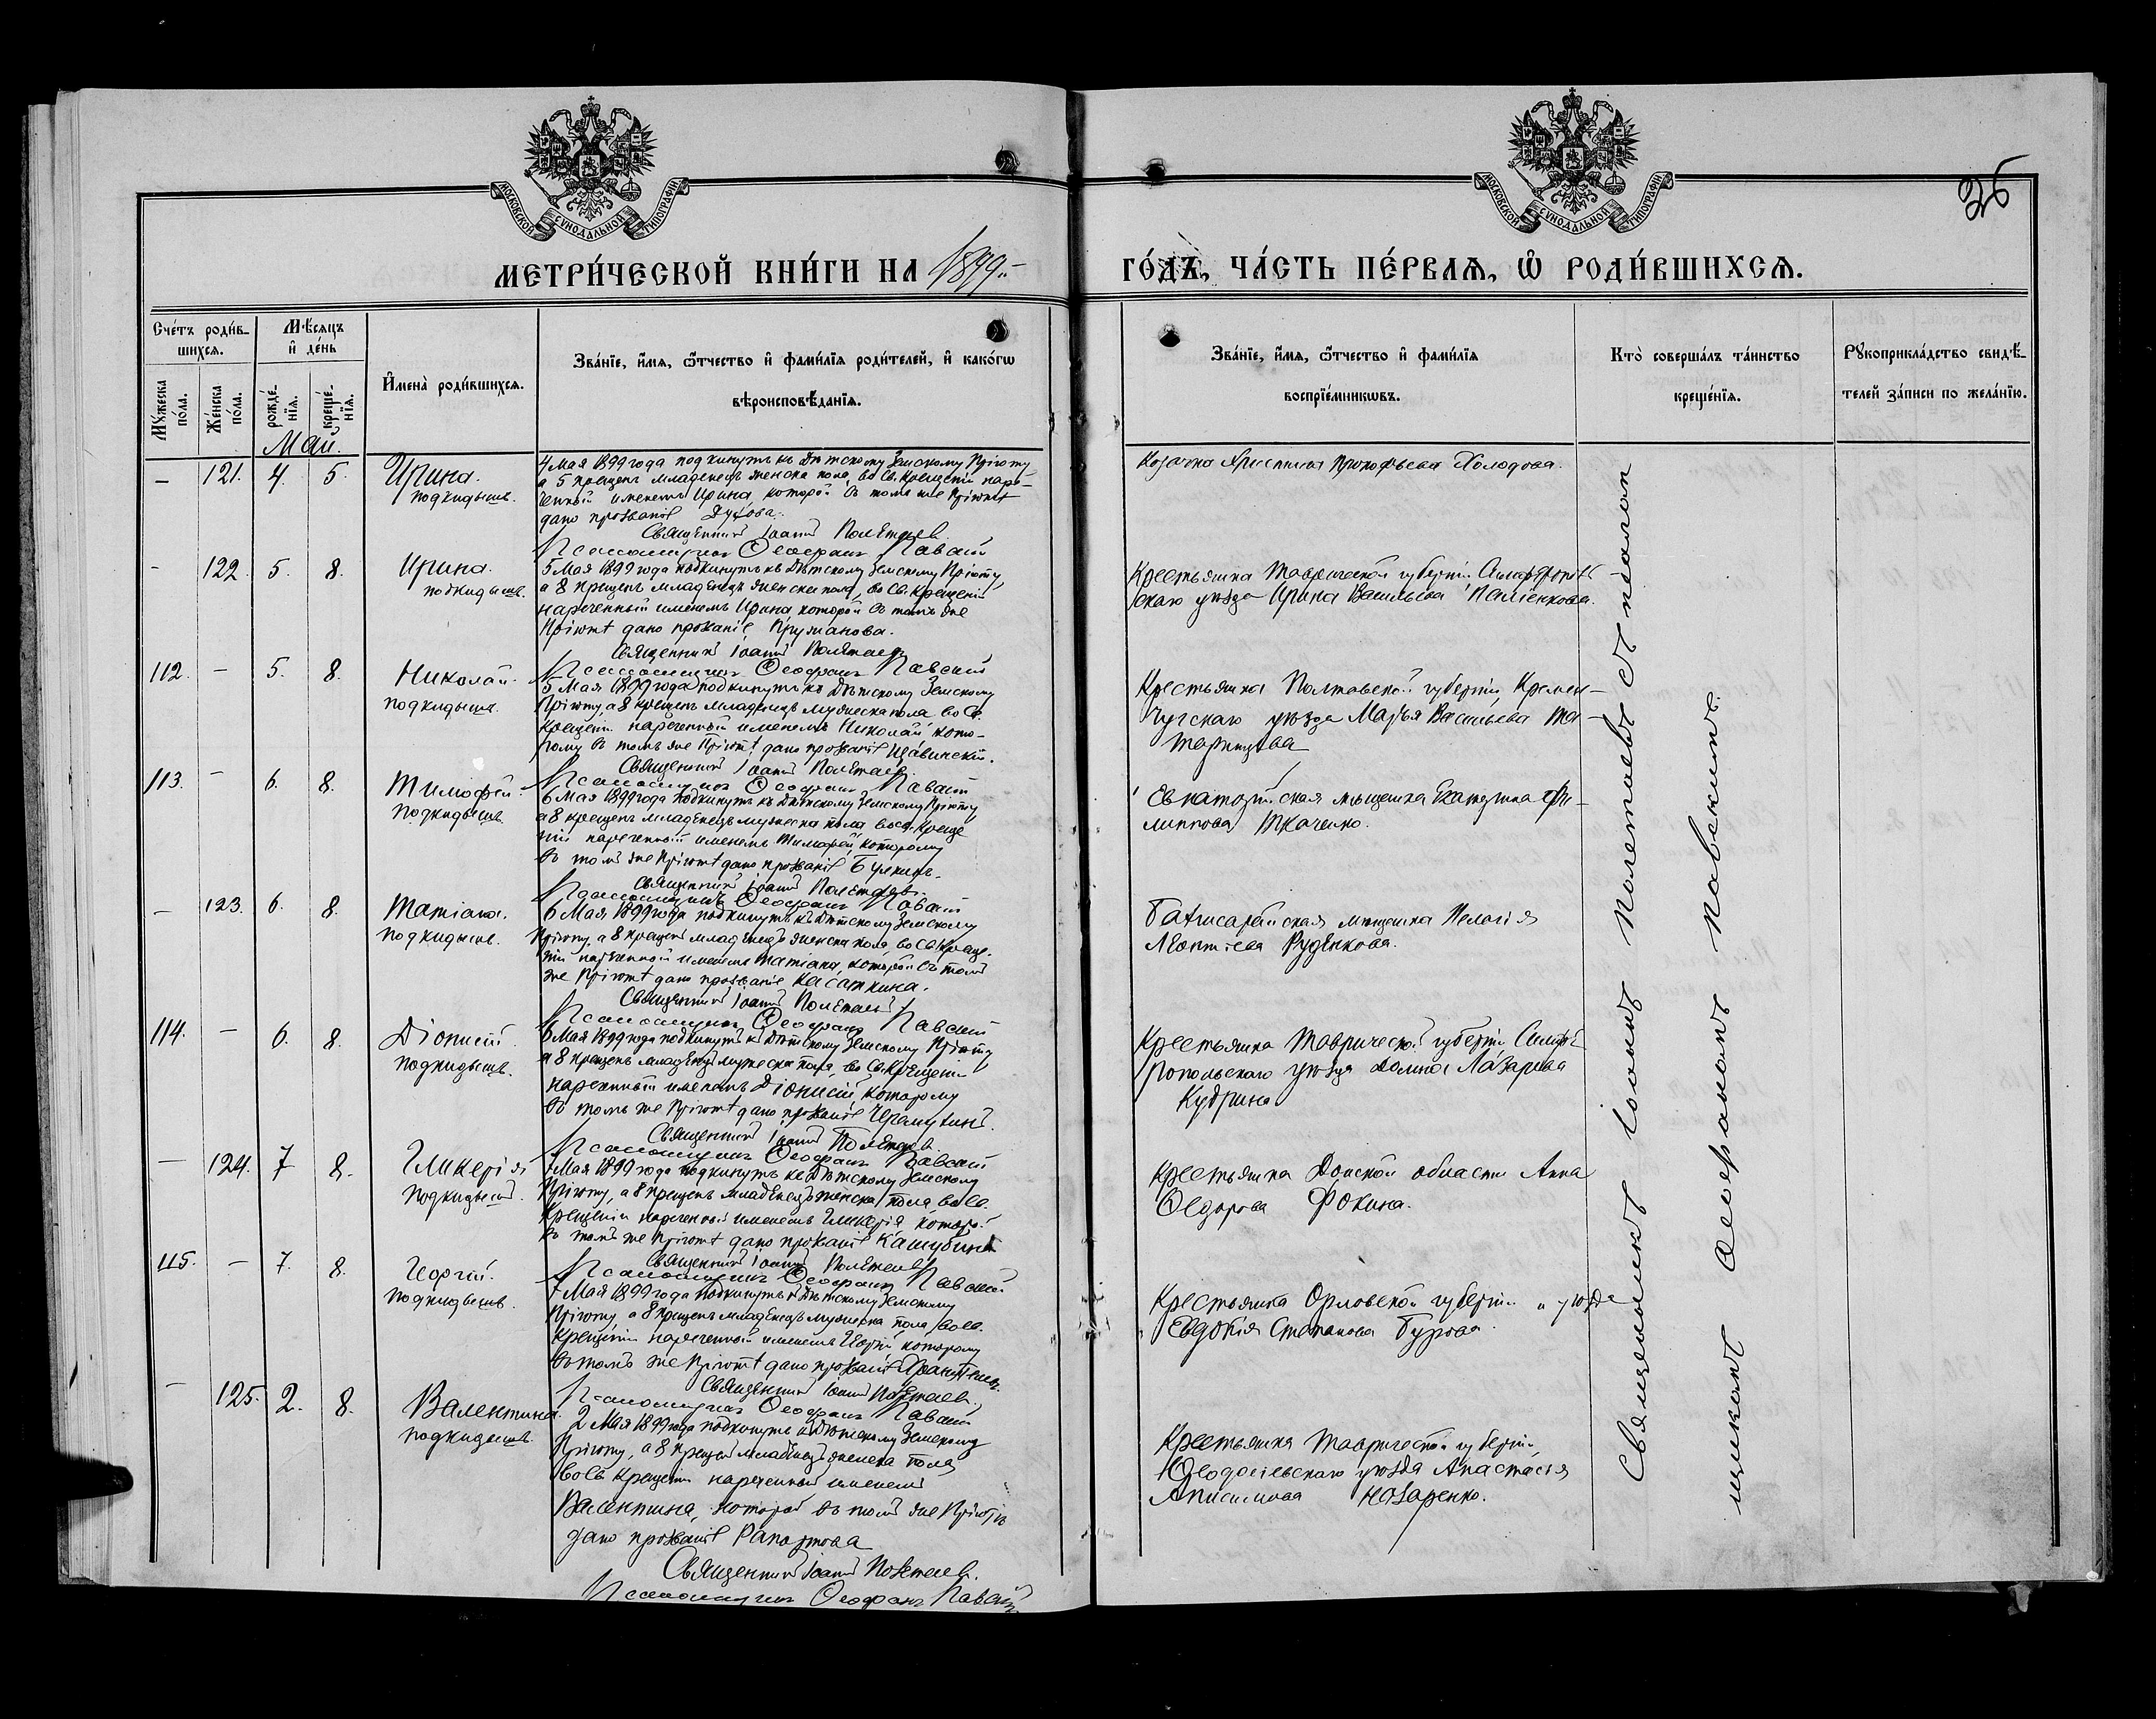 МОСКОВСКОЙ СѴНОДАЛЬНОЙ ТИПОГРАФІИ
МОСКОВСКОЙ СѴНОДАЛЬНОЙ ТИПОГРАФІИ
МЕТРИ́ЧЕСКОЙ КНИ́ГИ НА 1899
ГО́ДЪ, ЧА́СТЬ ПЕ́РВАѦ, Ѡ҆ РОДИ́ВШИХСѦ.
Сче́тъ роди́в-
шихсѧ.
Мꙋ́жеска по́ла.
Же́нска по́ла.
Мѣ́сѧцъ
и҆ де́нь
рожде́-
нїѧ.
креще́-
нїѧ.
И҆мена̀ роди́вшихсѧ.
Зва́нїе, и҆́мѧ, ѻ҆́тчество и҆ фами́лїѧ роди́телей, и҆ како́гѡ
вѣроисповѣ́данїѧ.
Зва́нїе, и҆́мѧ, ѻ҆́тчество и҆ фами́лїѧ
воспрїе́мникѡвъ.
Кто̀ соверша́лъ та́инство
креще́нїѧ.
Рꙋкоприкла́дство свидѣ́-
телей за́писи по жела́нїю.
Май.
— 121. 4. 5. Ирина.
подкидышъ.
4 Мая 1899 года подкинутъ къ Дѣтскому Земскому Пріюту,
а 5 крещенъ младенецъ женска пола, во Св. Крещеніи наре-
ченный именемъ Ирина, которой въ томъ же Пріютѣ
дано прозваніе Духова.
Священникъ Іоаннъ Полетаевъ.
Псаломщикъ Ѳеофанъ Павскій
Козачка Прокофьева Холодова.
- 122. 5. 8. Ирина.
подкидышъ.
5 Мая 1899 года подкинутъ къ Дѣтскому Земскому Пріюту,
а 8 крещенъ младенецъ женска пола, во Св. Крещеніи
нареченный именемъ Ирина которой въ томъ же
Пріютѣ дано прозваніе Пружанова.
Священникъ Іоаннъ Полетаевъ
Псаломщикъ Ѳеофанъ Павскій
Крестьянка Таврической губерніи Симферополь-
скаго уѣзда Ирина Васильева
112. — 5. 8. Николай.
подкидышъ.
5 Мая 1899 года подкинутъ къ Дѣтскому Земскому
Пріюту, а 8 крещенъ младенецъ мужеска пола во Св.
Крещеніи нареченный именемъ Николай кото-
рому въ томъ же Пріютѣ дано прозваніе
Священникъ Іоаннъ Полетаевъ.
Псаломщикъ Ѳеофанъ Павскій
Крестьянка Полтавской губерніи, Кремен-
чугскаго уѣзда Марья Васильева
113. — 6. 8. Тимофей.
подкидышъ.
6 Мая 1899 года подкинутъ къ Дѣтскому Земскому Пріюту
а 8 крещенъ младенецъ мужеска пола во Св. Креще
ніи нареченный именемъ Тимофей, которому
въ томъ же Пріютѣ дано прозваніе Булкинъ.
Священникъ Іоаннъ Полетаевъ.
Псаломщикъ Ѳеофанъ Павскій
Евпаторійская мѣщанка Екатерина Фи-
липпова Ткаченко.
— 123. 6. 8. Татіана.
подкидышъ.
6 Мая 1899 года подкинутъ къ Дѣтскому Земскому
Пріюту, а 8 крещенъ младенецъ женска пола, во Св. Креще-
ніи нареченный именемъ Татіана, которой въ томъ
же Пріютѣ дано прозваніе Касаткина.
Священникъ Іоаннъ Полетаевъ
Псаломщикъ Ѳеофанъ Павскій
Бахчисарайская мѣщанка Пелагія
Леонтіева Руденкова.
114. — 6. 8. Діонисій.
подкидышъ.
6 Мая 1899 года подкинутъ къ Дѣтскому Земскому Пріюту
а 8 крещенъ младенецъ мужеска пола, во Св. Крещеніи
нареченный именемъ Діонисій, которому
въ томъ же Пріютѣ дано прозваніе
Священникъ Іоаннъ Полетаевъ
Псаломщикъ Ѳеофанъ Павскій
Крестьянка Таврической губерніи Симфе-
ропольскаго уѣзда Домна Лазарева
Кудрина
— 124. 7 8. Гликерія
подкидышъ.
7 Мая 1899 года подкинутъ къ Дѣтскому Земскому
Пріюту, а 8 крещенъ младенецъ женска пола, во Св.
Крещеніи нареченный именемъ Гликерія, которой
въ томъ же Пріютѣ дано прозваніе Кашубина
Священникъ Іоаннъ Полетаевъ
Псаломщикъ Ѳеофанъ Павскій
Крестьянка Донской области Анна
Ѳедорова Фокина.
115. — 7. 8. Георгій.
подкидышъ.
7 Мая 1899 года подкинутъ къ Дѣтскому Земскому
Пріюту, а 8 крещенъ младенецъ мужеска пола, во Св.
Крещеніи нареченный именемъ Георгій, которому
въ томъ же Пріютѣ дано прозваніе
Священникъ Іоаннъ Полетаевъ.
Псаломщикъ Ѳеофанъ Павскій
Крестьянка Орловской губерніи и уѣзда
Евдокія Степанова Бурова.
— 125. 2. 8. Валентина.
подкидышъ.
2 Мая 1899 года подкинутъ къ Дѣтскому Земскому
Пріюту, а 8 крещенъ младенецъ женска пола
во Св Крещеніи нареченный именемъ
Валентина, которой въ томъ же Пріютѣ
дано прозваніе Рапортова
Священникъ Іоаннъ Полетаевъ.
Псаломщикъ Ѳеофанъ Павскій
Крестьянка Таврической губерніи,
Ѳеодосіевскаго уѣзда Анастасія
Анисимова Назаренко.
Священникъ Іоаннъ Полетаевъ съ псалом
щикомъ Ѳеофаномъ Павскимъ.